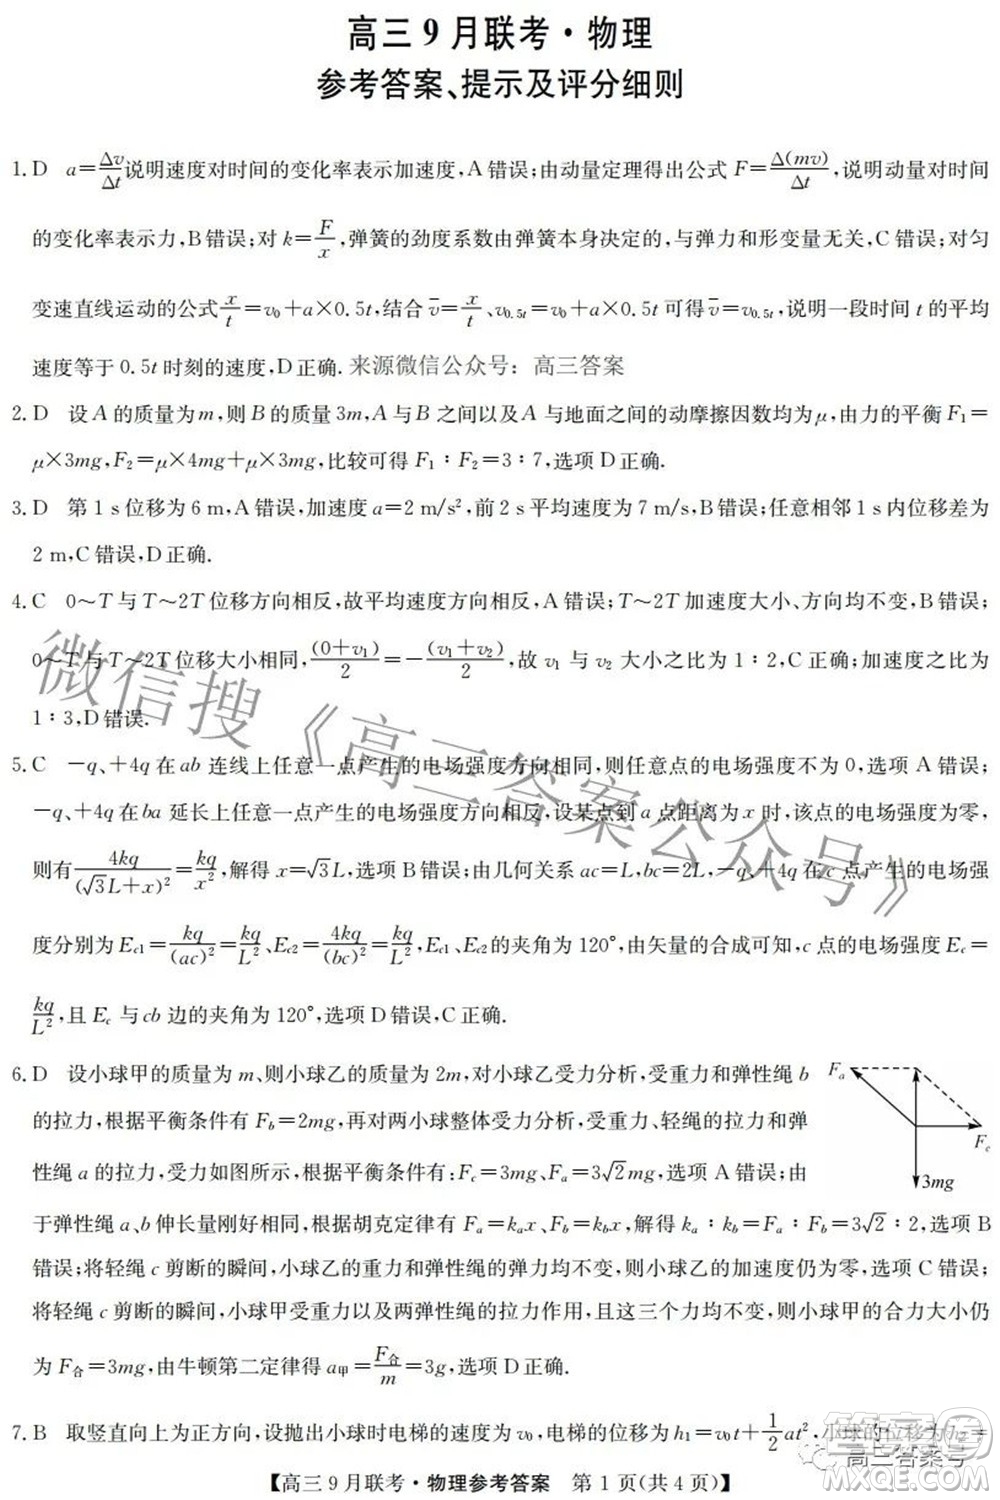 高三9月联考·物理
参考答案、提示及评分细则
1.D a=Δv/Δt说明速度对时间的变化率表示加速度,A错误;由动量定理得出公式F=Δ(mv)/Δt,说明动量对时间
的变化率表示力,B错误;对k=F/x,弹簧的劲度系数由弹簧本身决定的,与弹力和形变量无关,C错误;对匀
变速直线运动的公式x/t=v₀+a×0.5t,结合v̄=x/t、v₀.₅ₜ=v₀+a×0.5t可得v̄=v₀.₅ₜ,说明一段时间t的平均
速度等于0.5t时刻的速度,D正确. 来源微信公众号：高三答案
2.D 设A的质量为m,则B的质量3m,A与B之间以及A与地面之间的动摩擦因数均为μ,由力的平衡F₁=
μ×3mg,F₂=μ×4mg+μ×3mg,比较可得F₁∶F₂=3∶7,选项D正确.
3.D 第1s位移为6m,A错误,加速度a=2 m/s²,前2s平均速度为7 m/s,B错误;任意相邻1s内位移差为
2 m,C错误,D正确.
4.C 0~T与T~2T位移方向相反,故平均速度方向相反,A错误;T~2T加速度大小、方向均不变,B错误;
0~T与T~2T位移大小相同,(0+v₁)/2=-(v₁+v₂)/2,故v₁与v₂大小之比为1∶2,C正确;加速度之比为
1∶3,D错误.
5.C -q、+4q在ab连线上任意一点产生的电场强度方向相同,则任意点的电场强度不为0,选项A错误;
-q、+4q在ba延长上任意一点产生的电场强度方向相反,设某点到a点距离为x时,该点的电场强度为零,
则有4kq/(√3L+x)²=kq/x²,解得x=√3L,选项B错误;由几何关系ac=L,bc=2L,-q、+4q在c点产生的电场强
度分别为E_c1=kq/(ac)²=kq/L²、E_c2=4kq/(bc)²=kq/L²,E_c1、E_c2的夹角为120°,由矢量的合成可知,c点的电场强度E_c=
kq/L²,且E_c与cb边的夹角为120°,选项D错误,C正确.
6.D 设小球甲的质量为m、则小球乙的质量为2m,对小球乙受力分析,受重力和弹性绳b
的拉力,根据平衡条件有F_b=2mg,再对两小球整体受力分析,受重力、轻绳的拉力和弹
性绳a的拉力,受力如图所示,根据平衡条件有:F_c=3mg、F_a=3√2mg,选项A错误;由
于弹性绳a、b伸长量刚好相同,根据胡克定律有F_a=k_a x、F_b=k_b x,解得k_a∶k_b=F_a∶F_b=3√2∶2,选项B
错误;将轻绳c剪断的瞬间,小球乙的重力和弹性绳的弹力均不变,则小球乙的加速度仍为零,选项C错误;
将轻绳c剪断的瞬间,小球甲受重力以及两弹性绳的拉力作用,且这三个力均不变,则小球甲的合力大小仍
为F合=3mg,由牛顿第二定律得a甲=F合/m=3g,选项D正确.
F_a
F_c
3mg
7.B 取竖直向上为正方向,设抛出小球时电梯的速度为v₀,电梯的位移为h₁=v₀t+1/2at²,小球的位移为h₂=
【高三9月联考·物理参考答案 第1页(共4页)】
微信搜《高三答案公众号》
高三答案号
答案圈
MXQE.COM